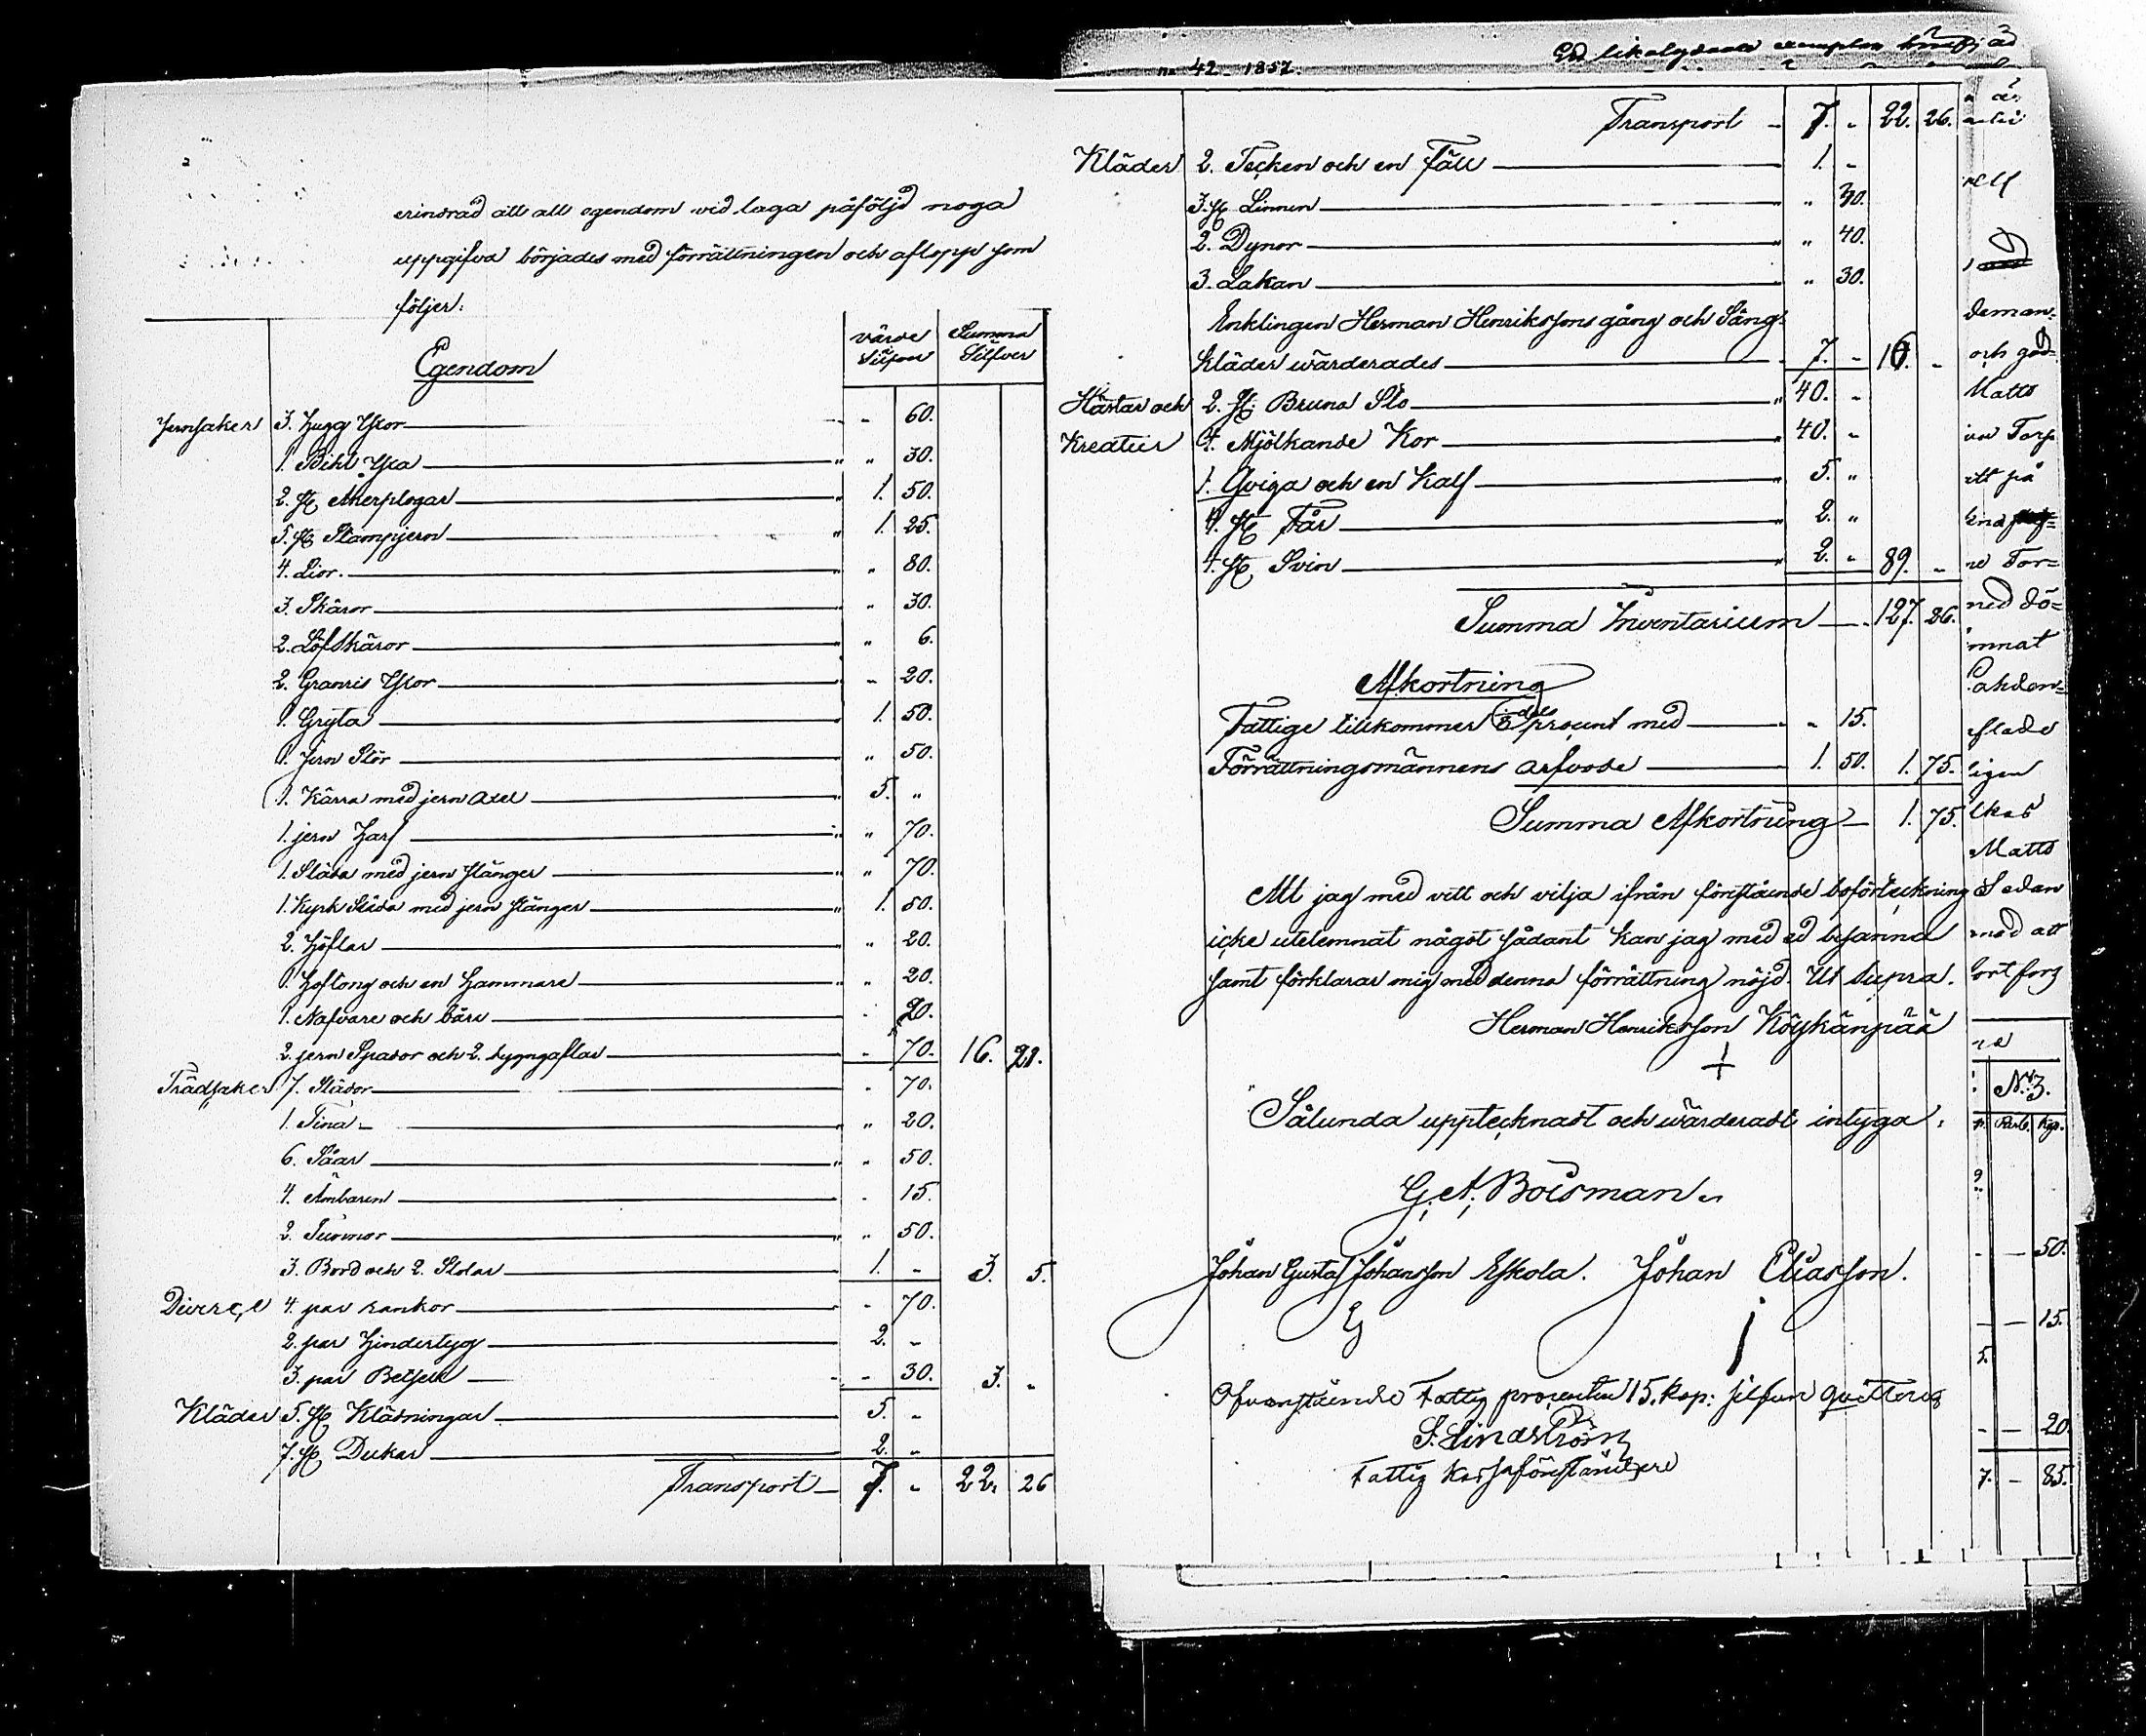 erindrad att all egendom vid laga påföljd noga
uppgifva börjades med förrättningen och aflopp som
följer:
Egendom värde Silfver Summa Silfver
Jernsaker 3. Hugg Yxor " 60.
1. Bihl Yxa " " 30.
2. st. Åkerplogar " 1. 50.
5. st. Stampjern " 1. 25.
4. Lior. " " 80.
3. Skäror " 30.
2. Löfskäror " 6.
2. Granris Yxor " 20.
1. Gryta 1. 50.
1. Jern Stör " 50.
1. Kärra med jern axel 5. "
1. jern Harf " 70.
1. Släda med jern stänger " 70.
1. Kyrk Släda med jern stänger " 1. 50.
2. Höflar " 20.
1. Hoftong och en Hammare " 20.
1. Nafvare och 20.
2. jern Spador och 2. " 70. 16. 21.
Trädsaker 7. Slädor " 70.
1. Tina " 20.
6. Såar " " 50.
4. Ämbaren " 15.
2. Tunnor " " 50.
3. Bord och 2. Stolar 1. " 3. 5.
Diverse 4. par rankor " 70.
2. par Hindertyg 2. "
3. par Betsel " 30. 3. "
Kläder 5. st. Klädningar 5. "
7. st. Dukar 2. "
Transport 7. " 22. 26
no 42. 1857. Ed likalydande exemplar
Transport 7. " 22. 26.
Kläder 2. Tecken och en Fäll 1. "
3. st. Linnen " 30.
2. Dynor " 40.
3. Lakan " 30.
Enklingen Herman Henrikssons gång och Säng
kläder wärderades 7. " 16. "
Hästar och 2. st. Bruna Sto 40. "
Kreatur 4. Mjölkande Kor 40. "
1. Qviga och en Kalf 5. "
4. st. Får 2. "
4. st. Svin 2. " 89. "
Summa Inventarium 127. 26.
Afkortning
Fattige tillkommer procent med " 15.
Förrättningsmännens arfvode 1. 50. 1. 75.
Summa Afkortning 1. 75.
Att jag med vett och vilja ifrån förestående boförteckning
icke utelemnat något sådant kan jag med ed besanna
samt förklarar mig med denna förrättning nöjd. Ut Supra.
Herman Henriksson Köykänpää
+
Sålunda upptecknadt och wärderadt intyga:
G. A. Boisman
Johan Gustaf Johansson Eskola. Johan Eliasson.
Ofvanstående Fattig procenten 15. kop: silfver quitteras
S. Lindström
Fattig kassaföreståndare
deman-
och god
Matts
Torp
ett på
ne For=
med dö=
mnat
flade
Matts
Sedan
med att
No. 3.
Rub. Kop.
50.
15.
5.
20
7. 85.